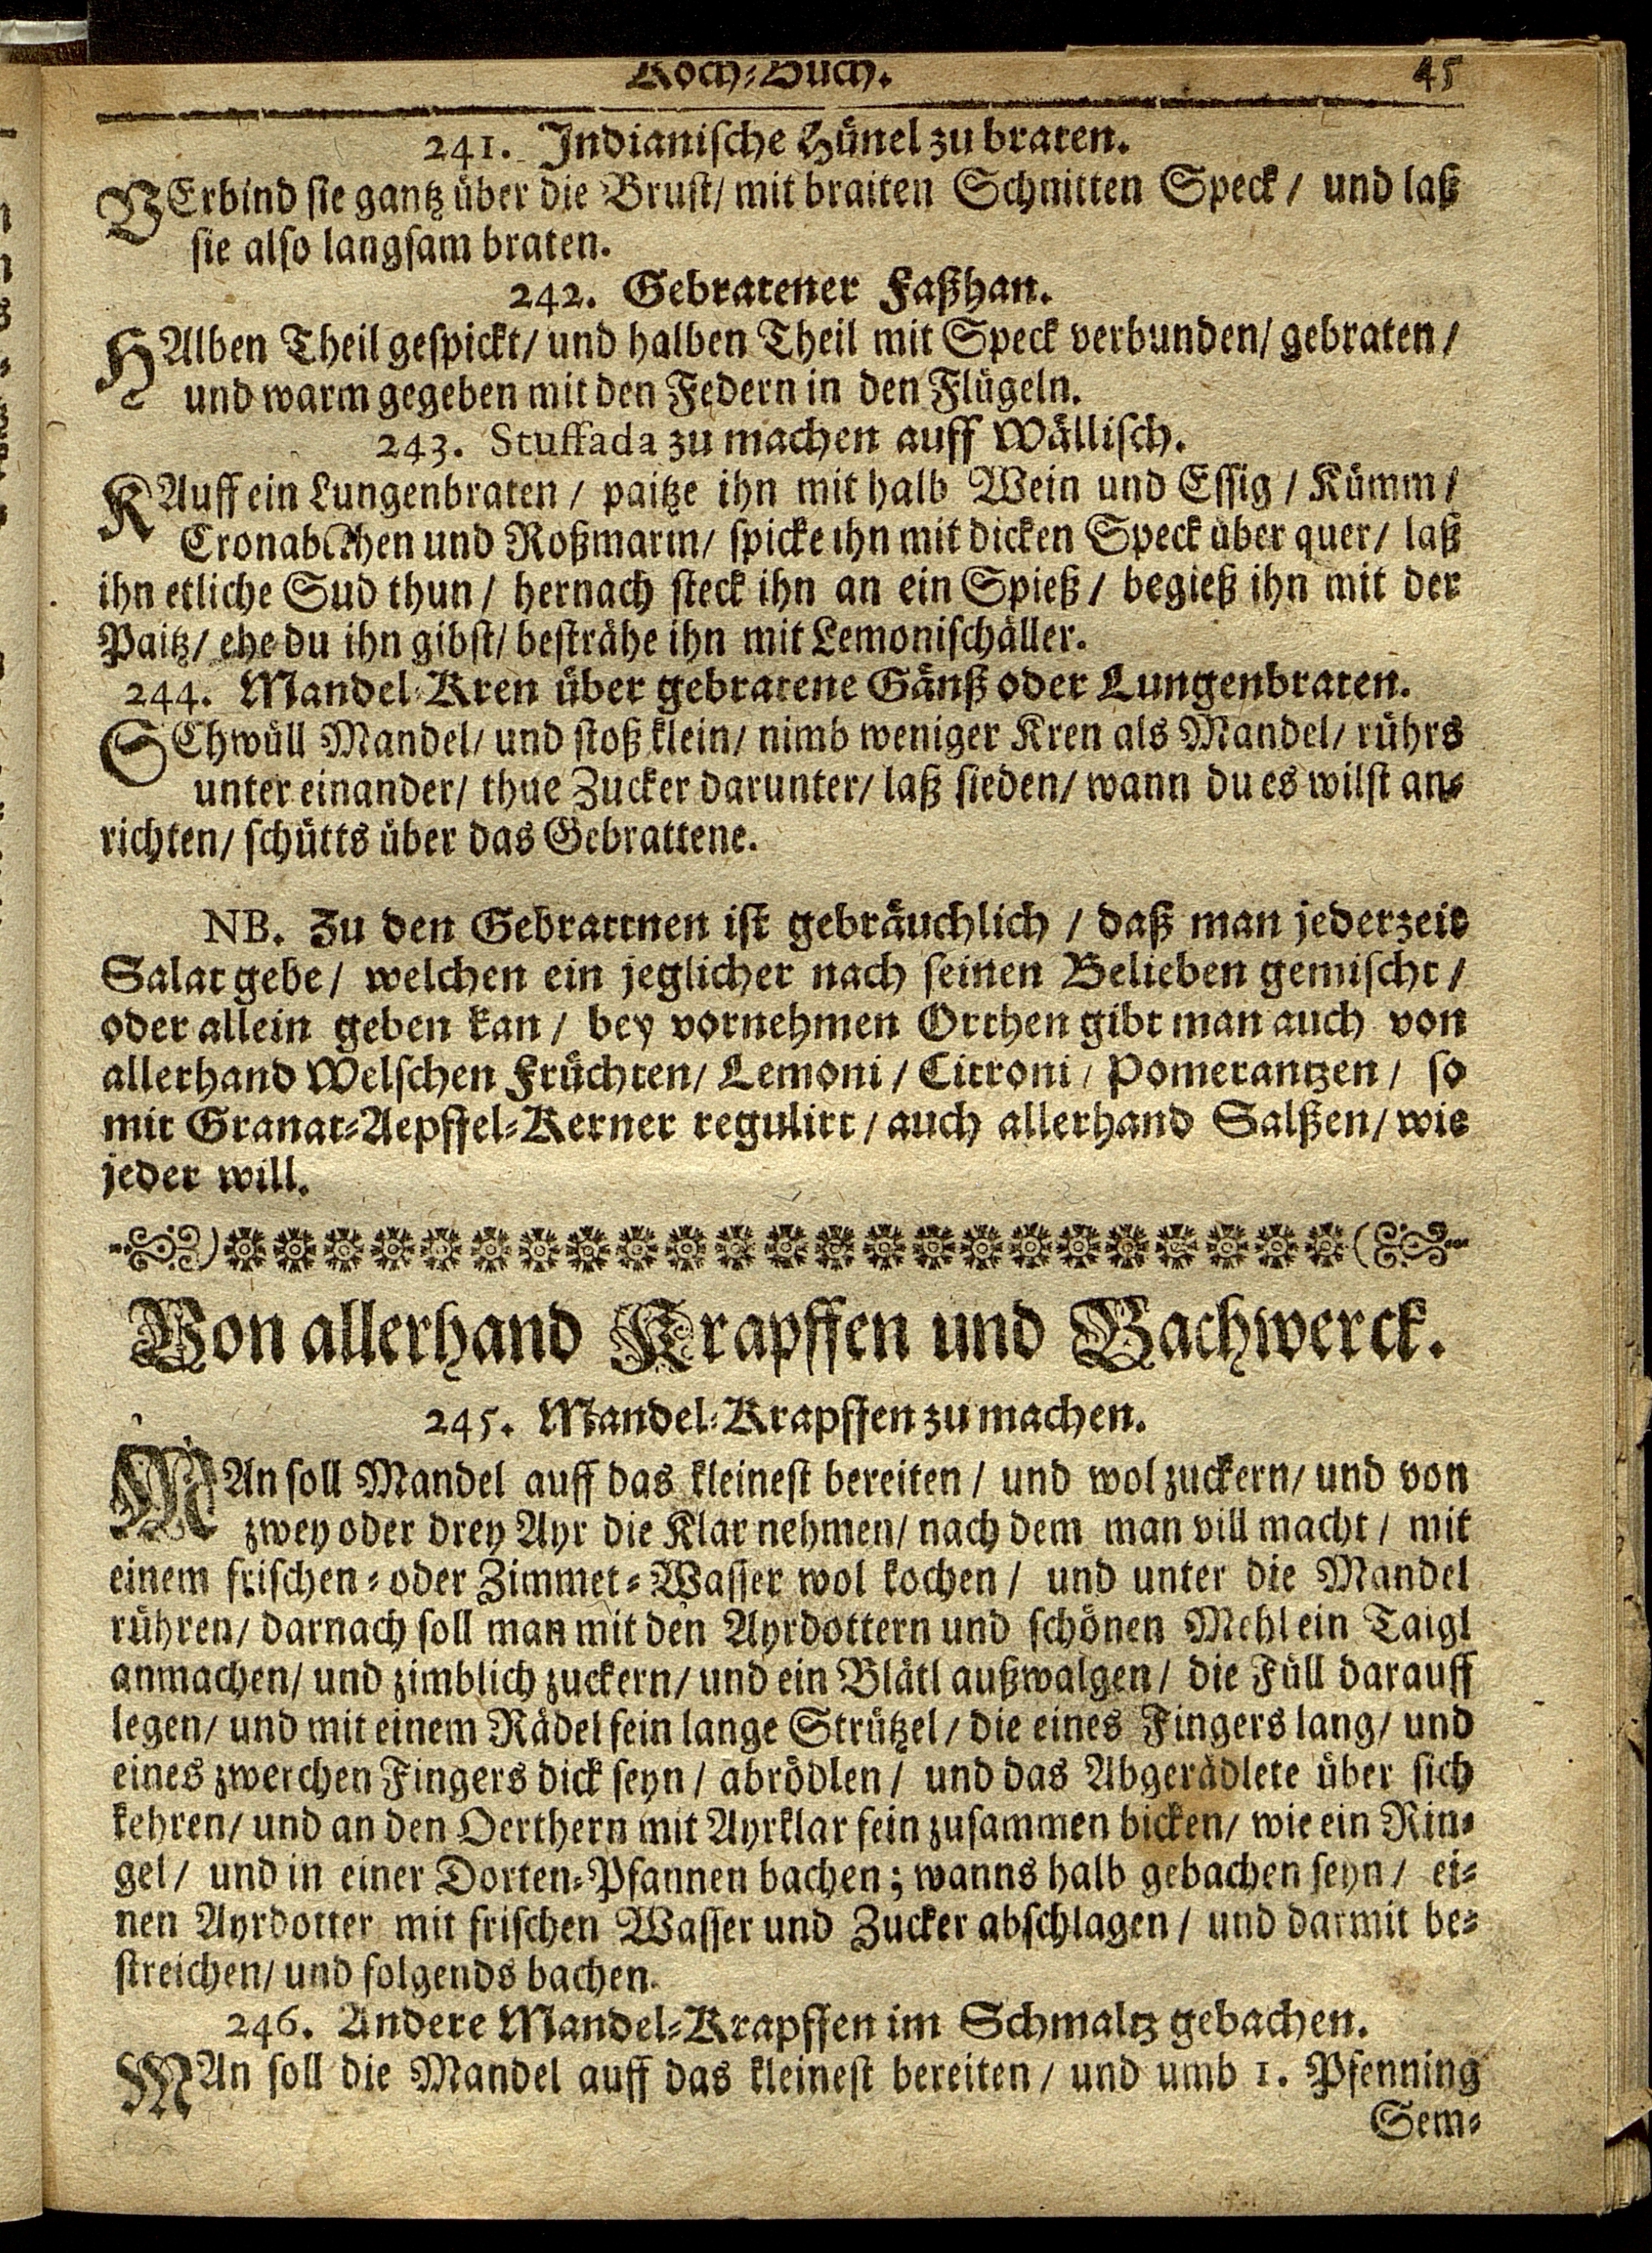 Koch-Buch. 45
241. Indianische Hünel zu braten.
VErbind sie gantz über die Brust/ mit braiten Schnitten Speck / und laß
sie also langsam braten.
242. Gebratener Faßhan.
HAlben Theil gespickt/ und halben Theil mit Speck verbunden/ gebraten /
und warm gegeben mit den Federn in den Flügeln.
243. Stuffada zu machen auff Wällisch.
KAuff ein Lungenbraten / paitze ihn mit halb Wein und Essig / Kümm /
und Roßmarin/ spicke ihn mit dicken Speck über quer/ laß
ihn etliche Sud thun / hernach steck ihn an ein Spieß / begieß ihn mit der
Paitz/ ehe du ihn gibst/ besträhe ihn mit Lemonischäller.
244. Mandel-Kren über gebratene Gänß oder Lungenbraten.
SChwüll Mandel/ und stoß klein/ nimb weniger Kren als Mandel/ rührs
unter einander/ thue Zucker darunter/ laß sieden/ wann du es wilst an-
richten/ schütts über das Gebrattene.
NB. Zu den Gebrattnen ist gebräuchlich / daß man jederzeit
Salat gebe / welchen ein jeglicher nach seinen Belieben gemischt /
oder allein geben kan / bey vornehmen Orthen gibt man auch von
allerhand Welschen Früchten/ Lemoni / Citroni / Pomerantzen / so
mit Granat-Aepffel-Kerner regulirt / auch allerhand Salßen / wie
jeder will.
Von allerhand Krapffen und Bachwerck.
245. Mandel-Krapffen zu machen.
MAn soll Mandel auff das kleinest bereiten / und wol zuckern/ und von
zwey oder drey Ayr die Klar nehmen/ nach dem man vill macht / mit
einem frischen- oder Zimmet-Wasser wol kochen / und unter die Mandel
rühren/ darnach soll man mit den Ayrdottern und schönen Mehl ein Taigl
anmachen/ und zimblich zuckern/ und ein Blätl außwalgen / die Füll darauff
legen/ und mit einem Rädel fein lange Strützel / die eines Fingers lang/ und
eines zwerchen Fingers dick seyn / abrödlen / und das Abgerädlete über sich
kehren/ und an den Oerthern mit Ayrklar fein zusammen bicken/ wie ein Rin-
gel / und in einer Dorten-Pfannen bachen; wanns halb gebachen seyn / ei-
nen Ayrdotter mit frischen Wasser und Zucker abschlagen / und darmit be-
streichen/ und folgends bachen.
246. Andere Mandel-Krapffen im Schmaltz gebachen.
MAn soll die Mandel auff das kleinest bereiten / und umb 1. Pfenning
Sem-